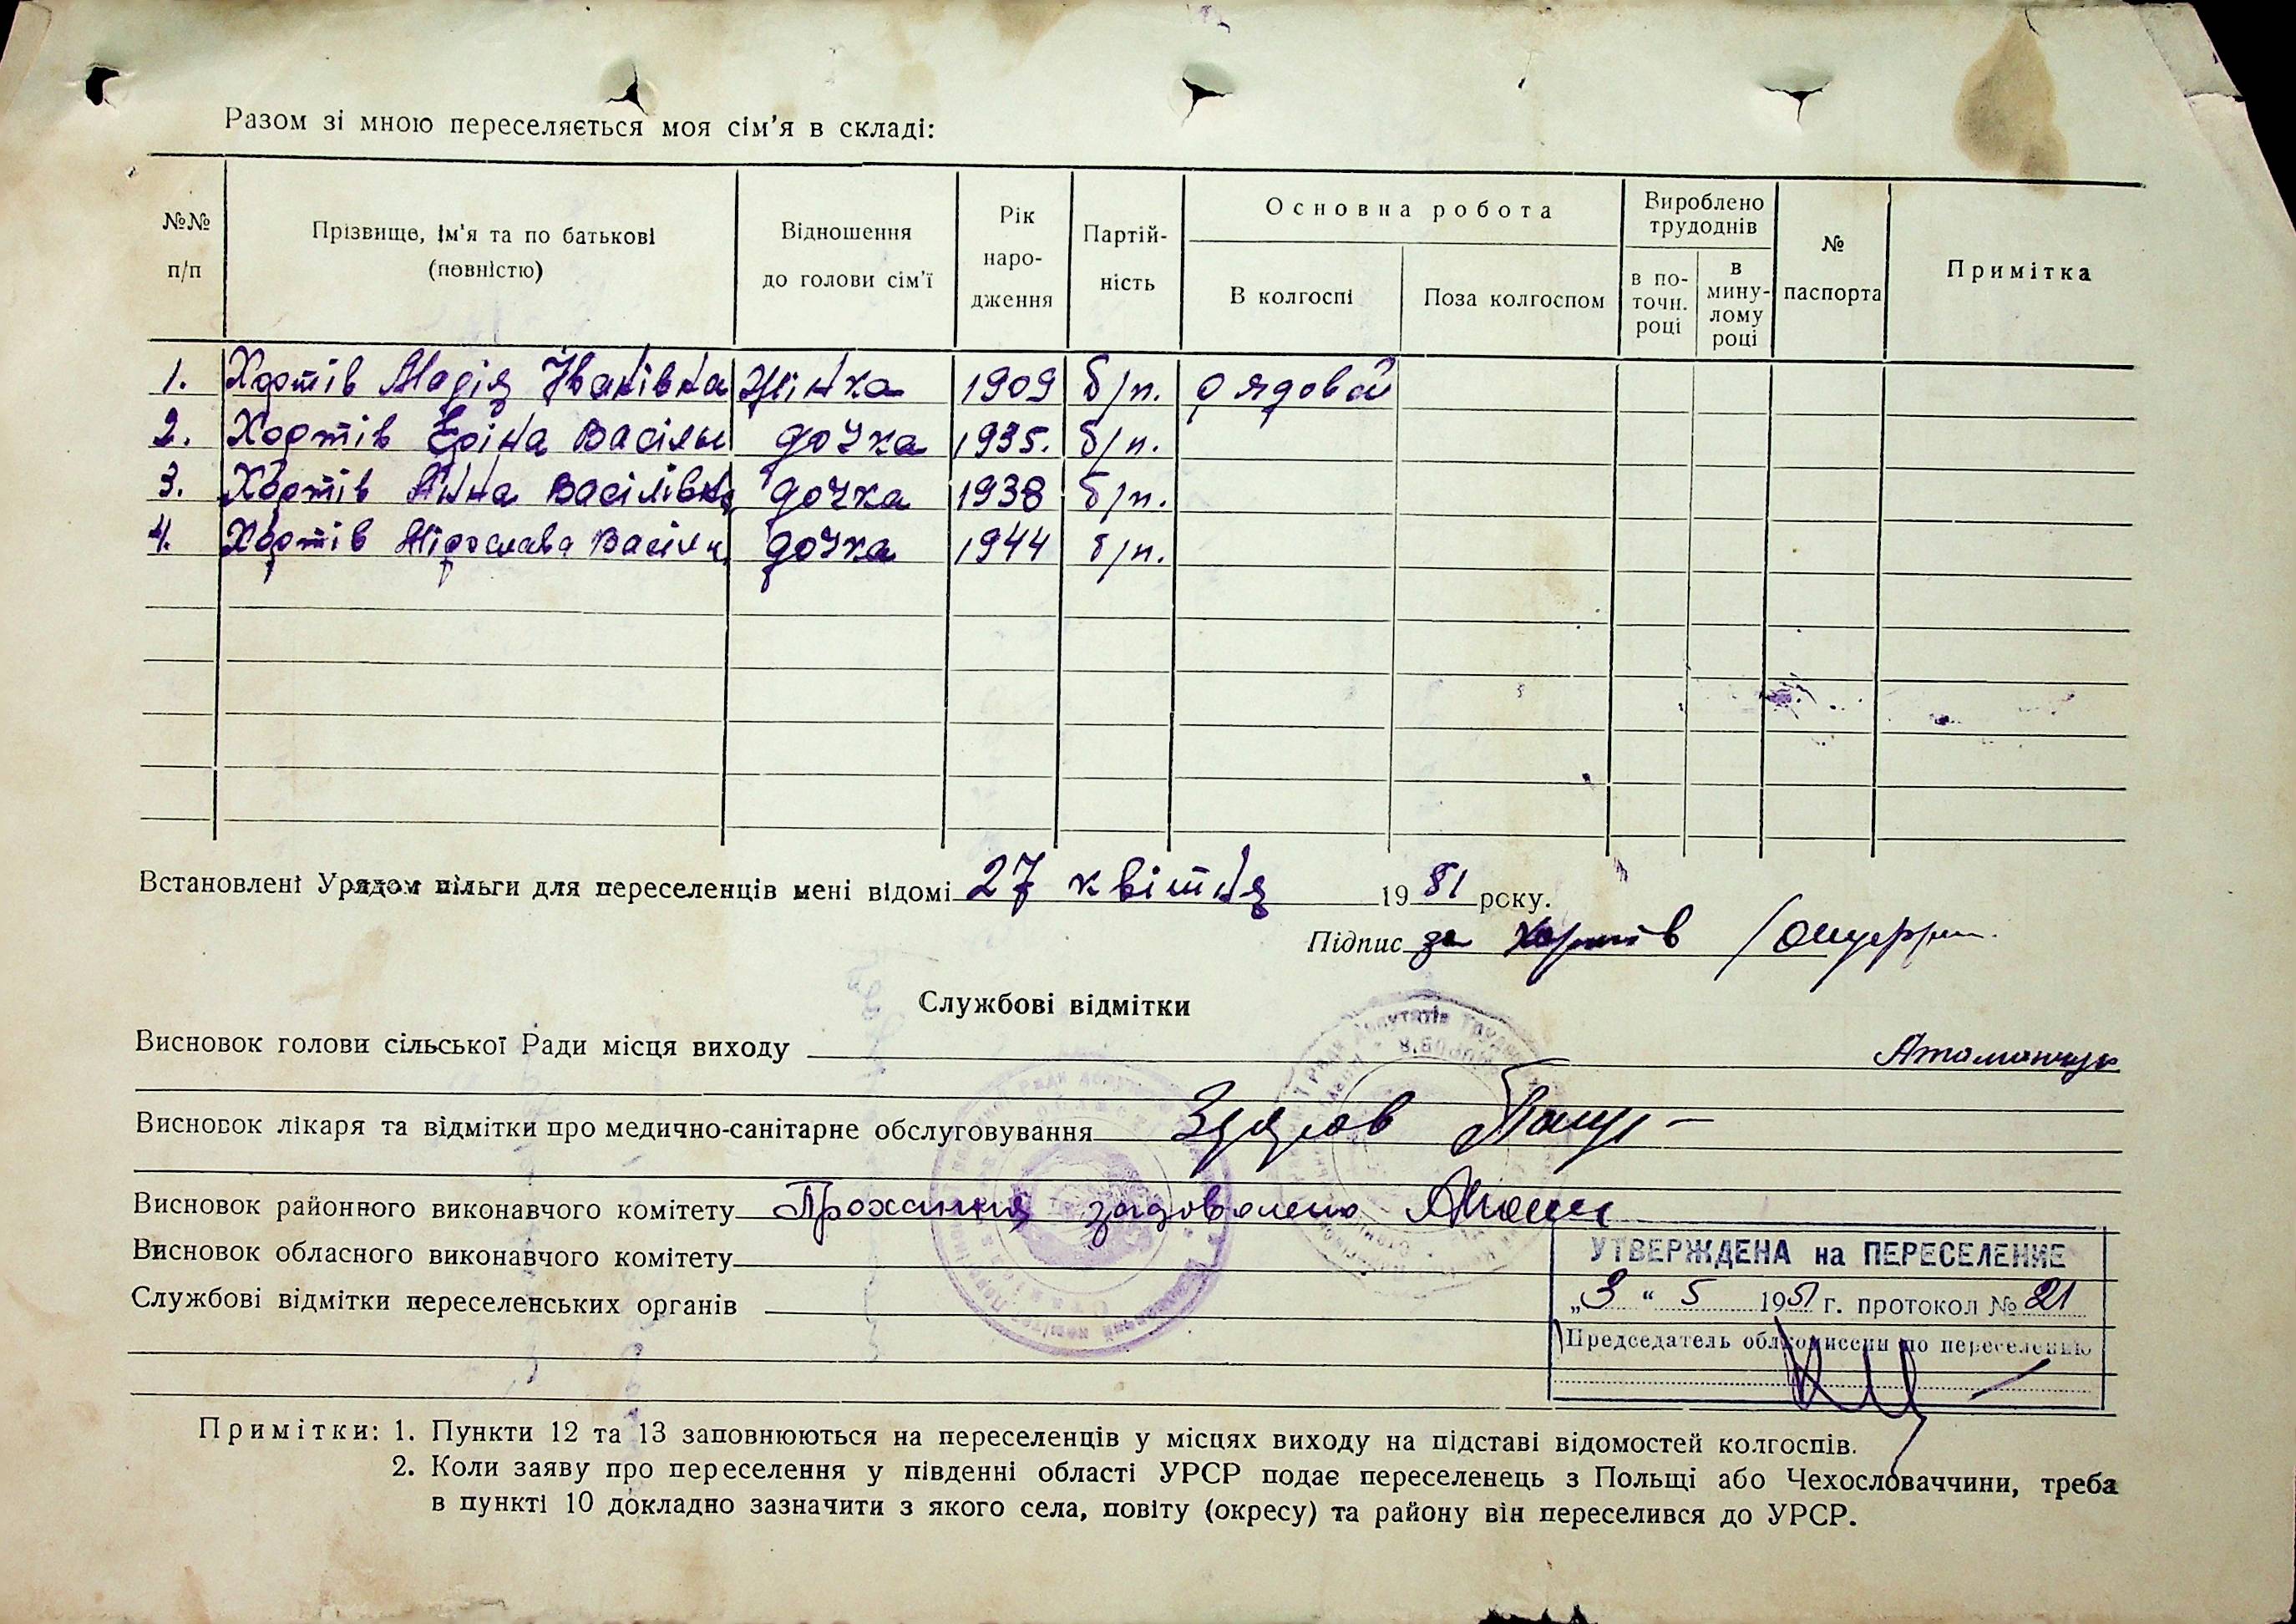 Разом зі мною переселяється моя сім'я в складі:
№№ п/п
Прізвище, ім'я та по батькові (повністю)
Відношення до голови сім'ї
Рік наро-дження
Партій-ність
Основна робота
В колгоспі
Поза колгоспом
Вироблено трудоднів
в по-точн. році
в мину-лому році
№ паспорта
Примітка
1. Хортів Марія Іванівна жінка 1909 б/п. рядовой
2. Хортів Еріна Васільн дочка 1935. б/п.
3. Хортів Анна Васілівна дочка 1938 б/п.
4. Хортів Мірослава Васілн дочка 1944 б/п.
Встановлені Урядом пільги для переселенців мені відомі 27 квітня 1951 року.
Підпис за Хортів
Службові відмітки
Висновок голови сільської Ради місця виходу Атаманчук
Висновок лікаря та відмітки про медично-санітарне обслуговування Здоров
Висновок районного виконавчого комітету Прохання задоволено
Висновок обласного виконавчого комітету
Службові відмітки переселенських органів
УТВЕРЖДЕНА на ПЕРЕСЕЛЕНИЕ
„3" 5 1951 г. протокол № 21
Председатель облкомиссии по переселению
Примітки: 1. Пункти 12 та 13 заповнюються на переселенців у місцях виходу на підставі відомостей колгоспів.
2. Коли заяву про переселення у південні області УРСР подає переселенець з Польщі або Чехословаччини, треба
в пункті 10 докладно зазначити з якого села, повіту (окресу) та району він переселився до УРСР.